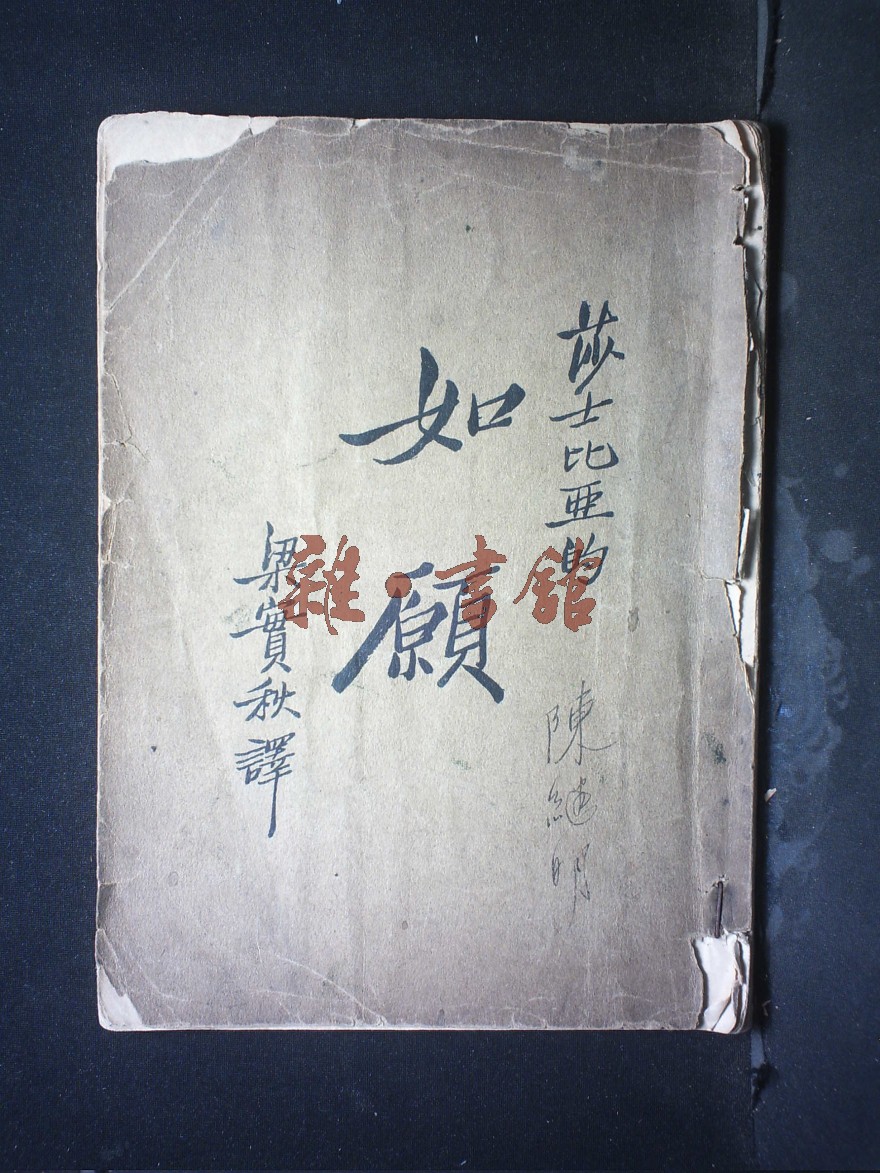 莎士比亚的
如願
梁實秋譯
陳繼明
雜·書館